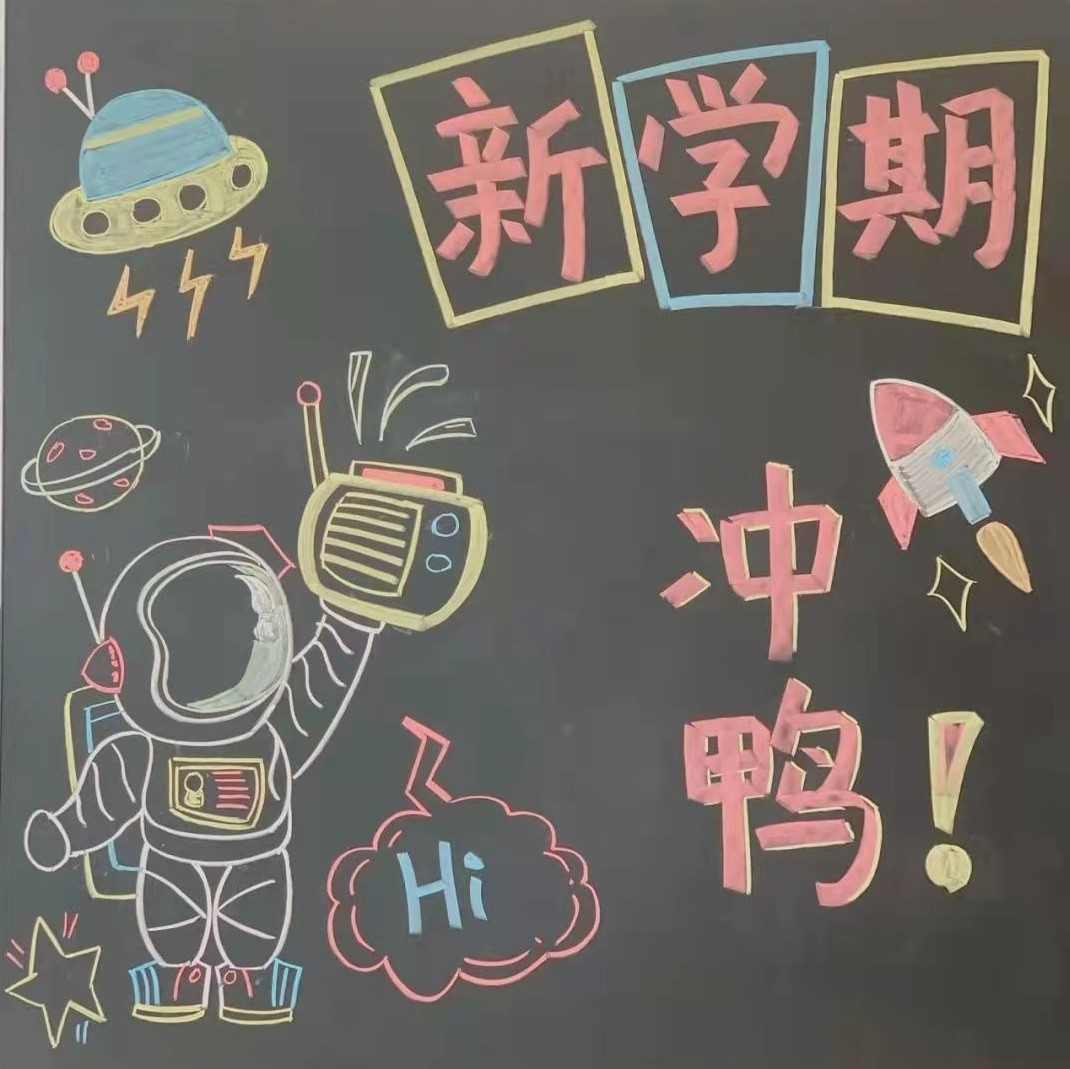 新学期
冲
鸭!
Hi